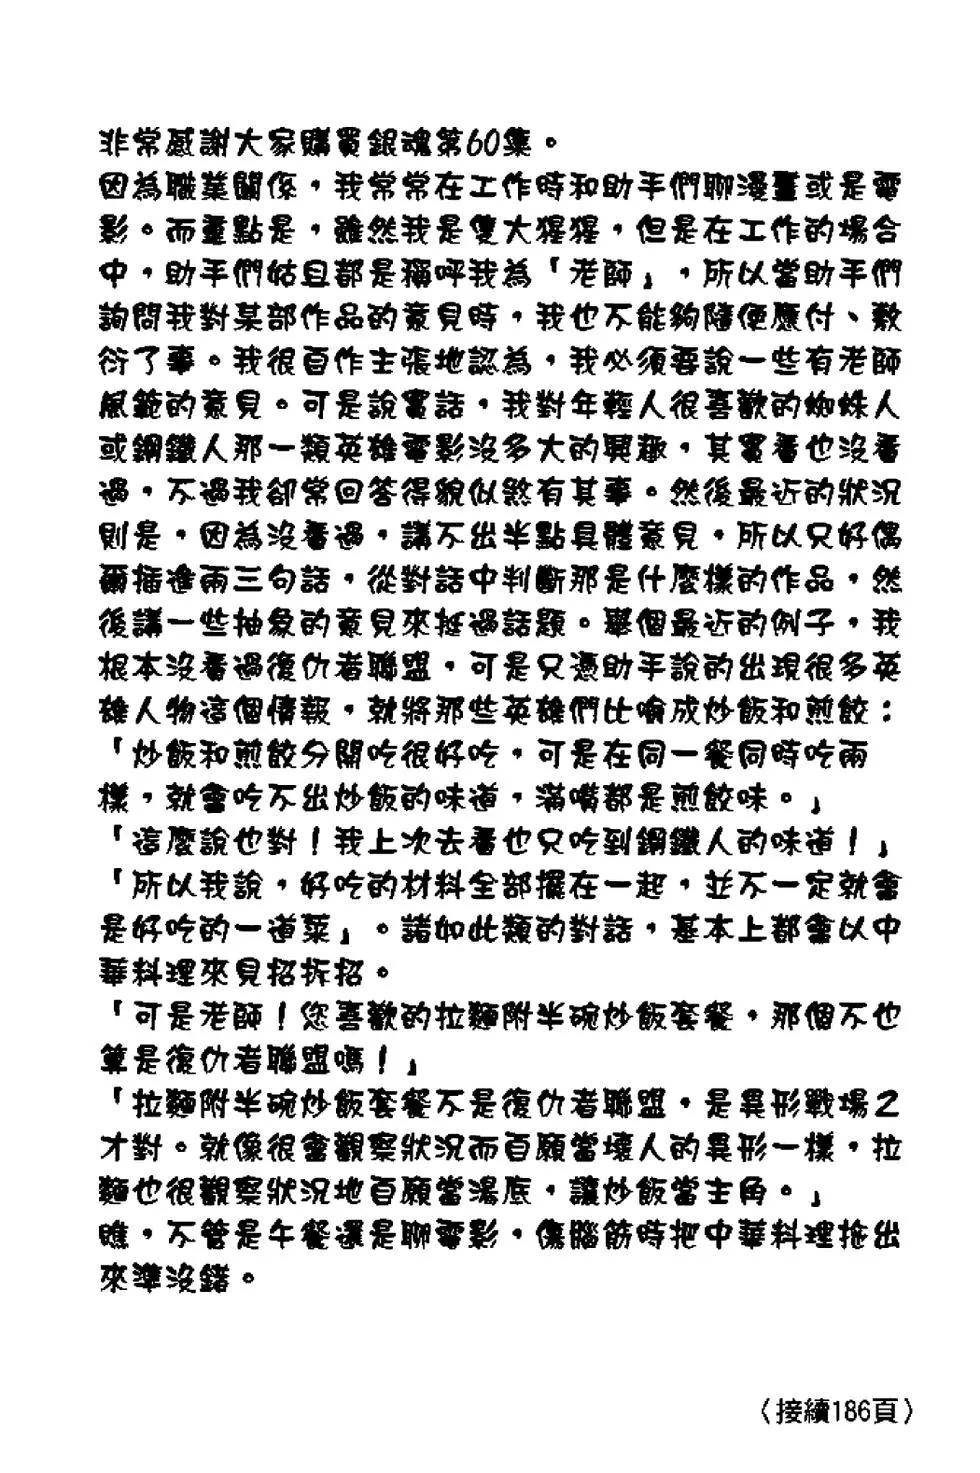 非常感謝大家購買銀魂第60集。
因為職業關係，我常常在工作時和助手們聊漫畫或是電
影。而重點是，雖然我是隻大猩猩，但是在工作的場合
中，助手們姑且都是稱呼我為「老師」，所以當助手們
詢問我對某部作品的意見時，我也不能夠隨便應付、敷
衍了事。我很自作主張地認為，我必須要說一些有老師
風範的意見。可是說實話，我對年輕人很喜歡的蜘蛛人
或鋼鐵人那一類英雄電影沒多大的興趣，其實看也沒看
過，不過我卻常回答得貌似煞有其事。然後最近的狀況
則是，因為沒看過，講不出半點具體意見，所以只好偶
爾插進兩三句話，從對話中判斷那是什麼樣的作品，然
後講一些抽象的意見來挺過話題。舉個最近的例子，我
根本沒看過復仇者聯盟，可是只憑助手說的出現很多英
雄人物這個情報，就將那些英雄們比喻成炒飯和煎餃：
「炒飯和煎餃分開吃很好吃，可是在同一餐同時吃兩
樣，就會吃不出炒飯的味道，滿嘴都是煎餃味。」
「這麼說也對！我上次去看也只吃到鋼鐵人的味道！」
「所以我說，好吃的材料全部擺在一起，並不一定就會
是好吃的一道菜」。諸如此類的對話，基本上都會以中
華料理來見招拆招。
「可是老師！您喜歡的拉麵附半碗炒飯套餐，那個不也
算是復仇者聯盟嗎！」
「拉麵附半碗炒飯套餐不是復仇者聯盟，是異形戰場2
才對。就像很會觀察狀況而自願當壞人的異形一樣，拉
麵也很觀察狀況地自願當湯底，讓炒飯當主角。」
瞧，不管是午餐還是聊電影，傷腦筋時把中華料理拖出
來準沒錯。
〈接續186頁〉